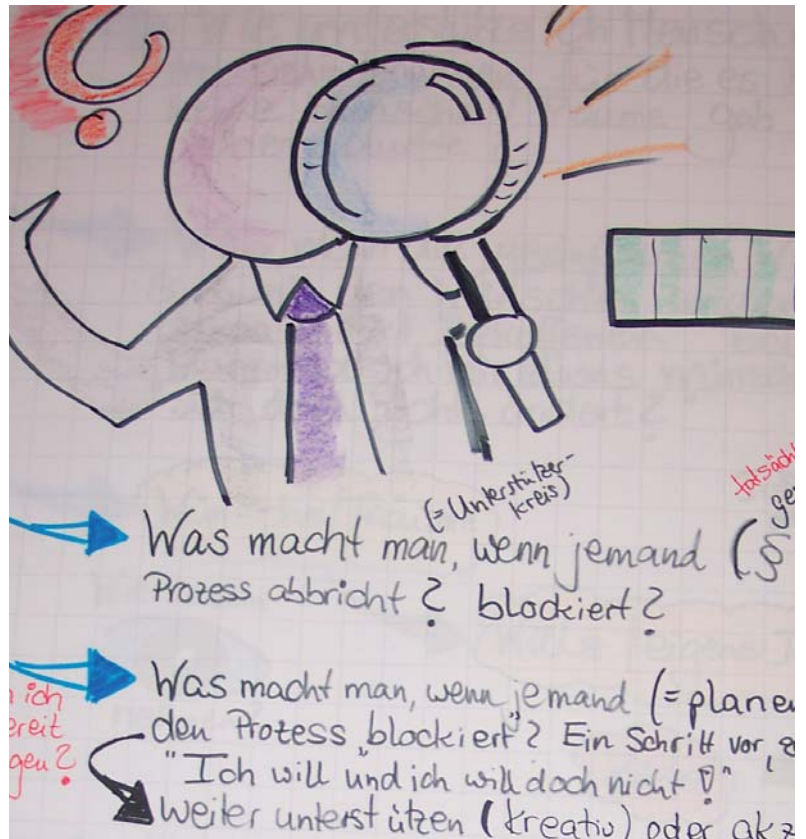 ?
(= Unterstützer-
kreis)
tatsächl
Was macht man, wenn jemand (§
Prozess abbricht? blockiert?
Was macht man, wenn jemand (= planen
den Prozess "blockiert"? Ein Schritt vor,
"Ich will und ich will doch nicht!"
ich
ereit
gen?
Weiter unterstützen (kreativ) oder akz